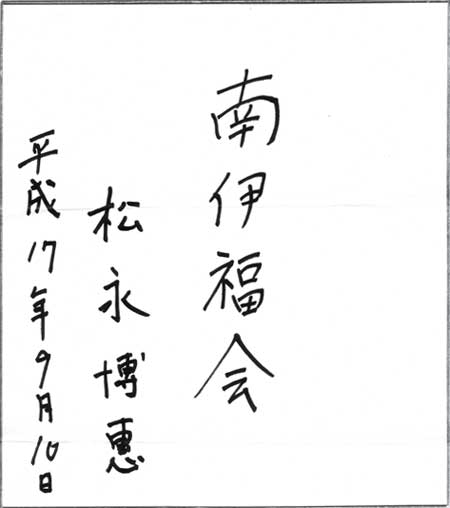 南伊福会
松永博恵
平成17年9月10日